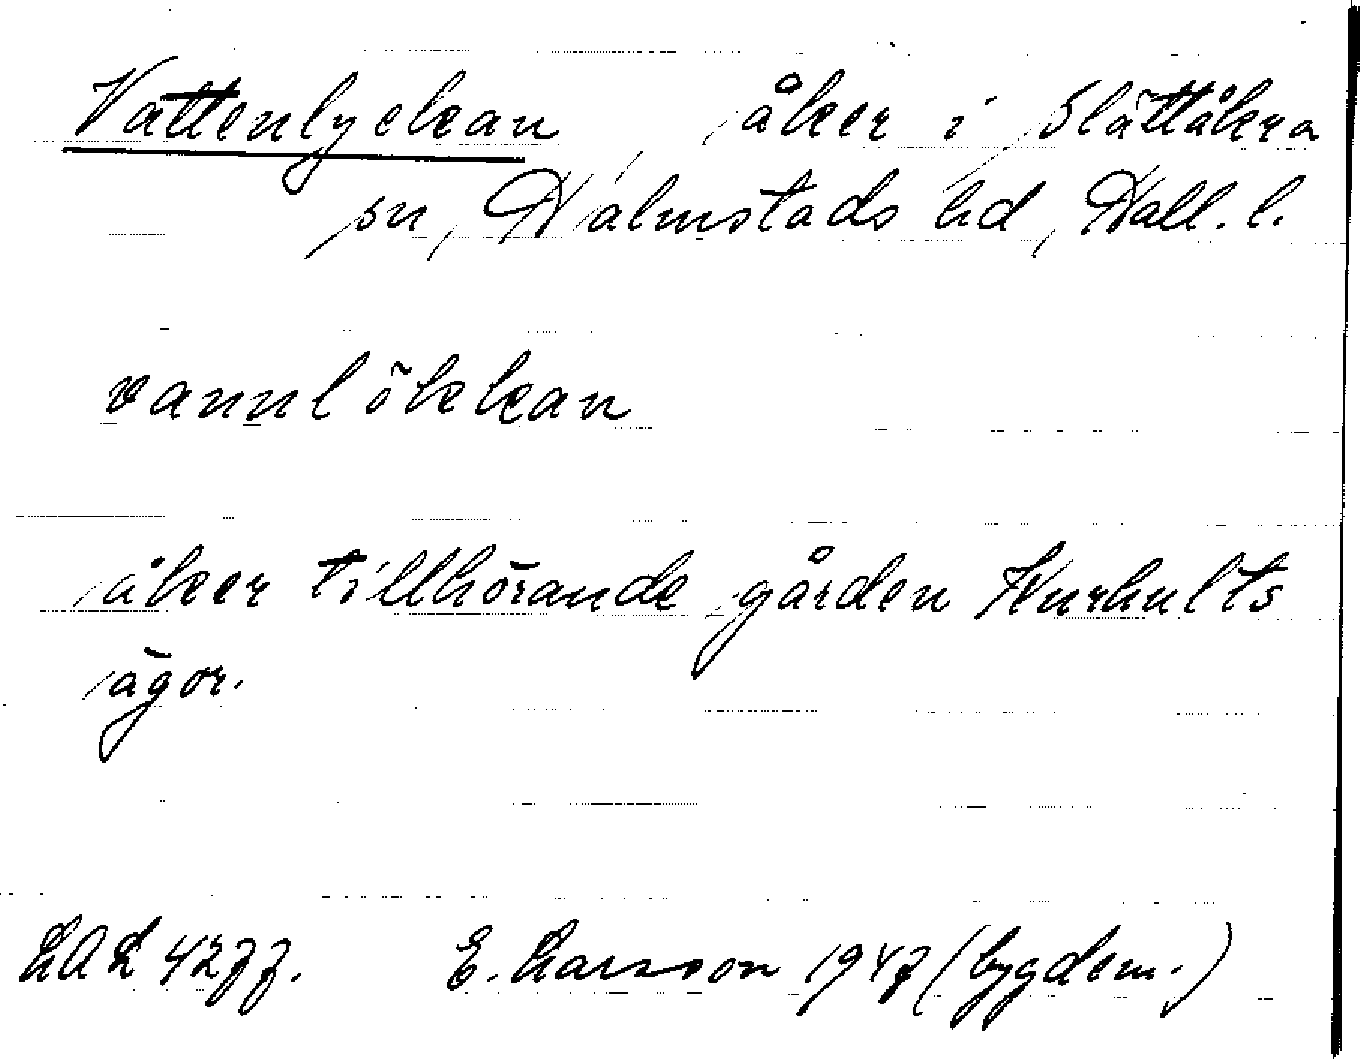 Vattenlyckan, åker i Slättåkra
sn, Halmstads hd, Hall. l.
vannlökkan
åker tillhörande gården Hurhults
ägor.
LAL 4277. E. Larsson 1947 (bygdem.)